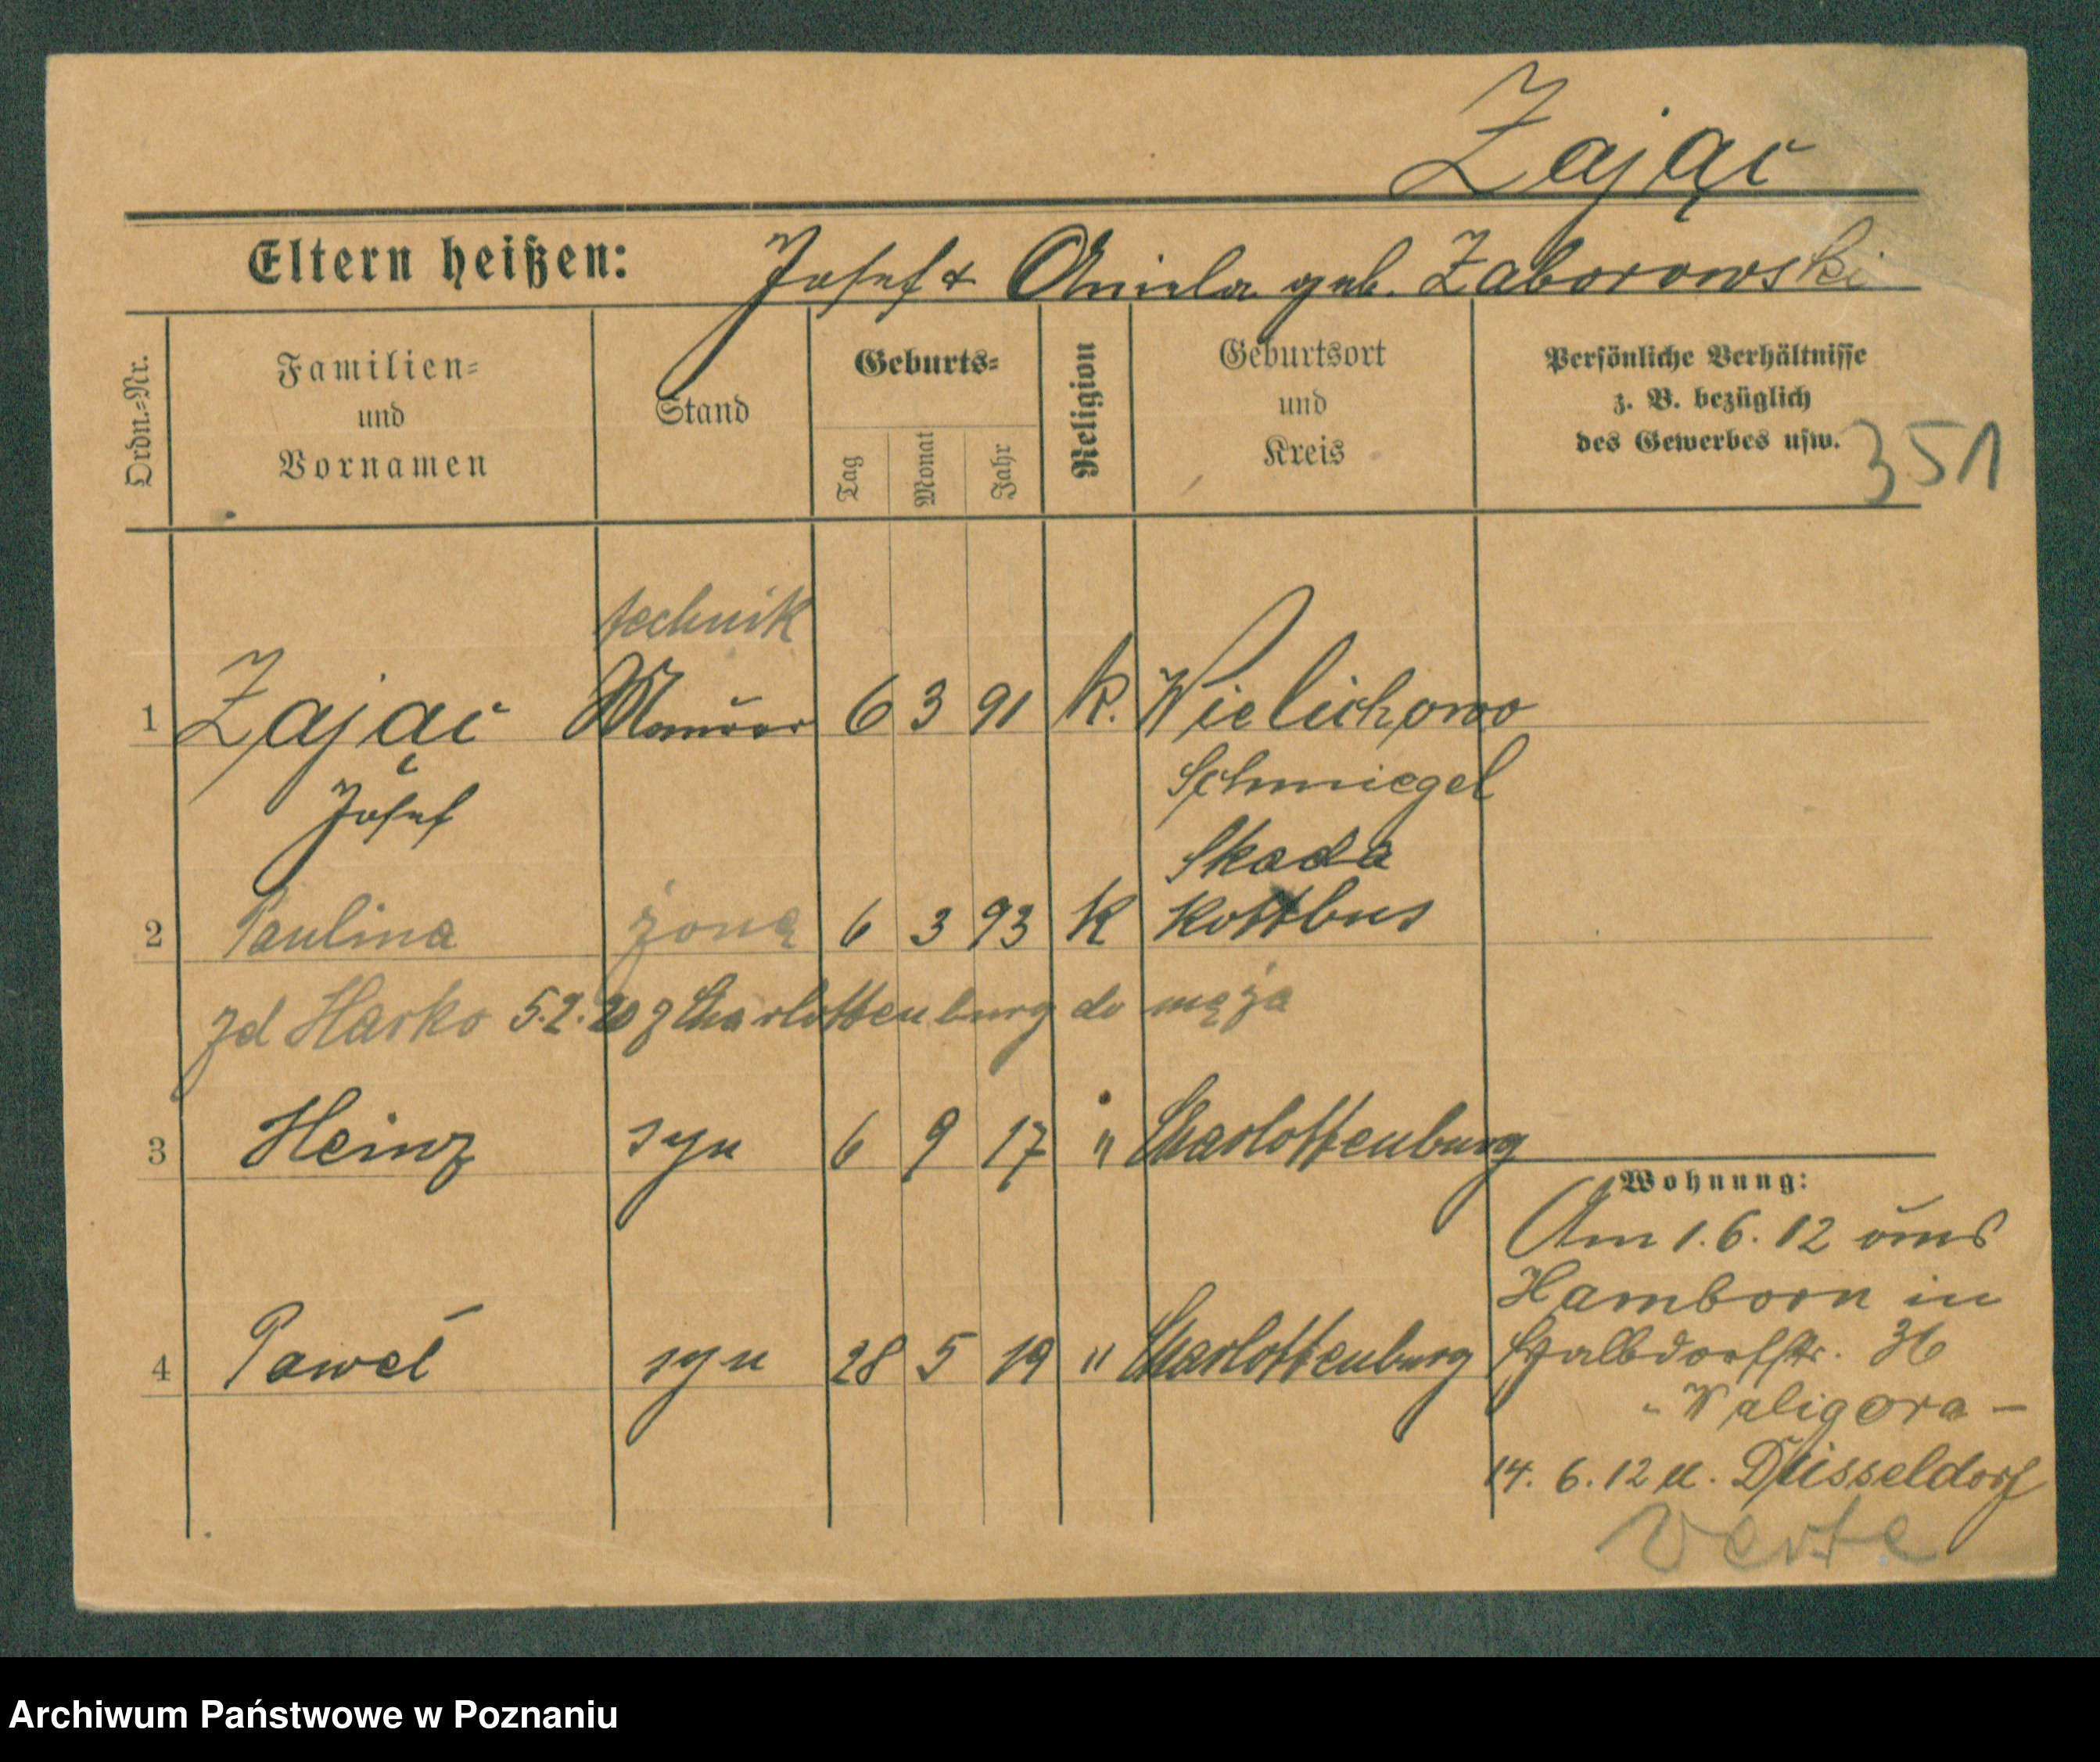 Zając
Eltern heißen: Josef & Aniela geb. Zaborowski
Ordn.-Nr.
Familien-
und
Vornamen
Stand
Geburts-
Tag
Monat
Jahr
Religion
Geburtsort
und
Kreis
Persönliche Verhältnisse
z. B. bezüglich
des Gewerbes usw.
351
technik
1 Zając Maurer 6 3 91 K. Wielichowo
Josef Schmiegel
Skada
2 Paulina żona 6 3 93 K Kottbus
zd Harko 5.2.20 z Charlottenburg do męża
3 Heinz syn 6 9 17 " Charlottenburg
Wohnung:
Am 1.6.12 aus
Hamborn in
36
4 Paweł syn 28 5 19 " Charlottenburg
- Waligora -
14. 6. 12 u. Düsseldorf
verte
Archiwum Państwowe w Poznaniu